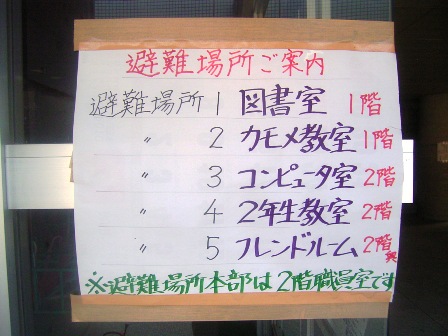 避難場所ご案内
避難場所1 図書室 1階
〃 2 カモメ教室 1階
〃 3 コンピュータ室 2階
〃 4 2年生教室 2階
〃 5 フレンドルーム 2階奥
※避難場所本部は2階職員室です